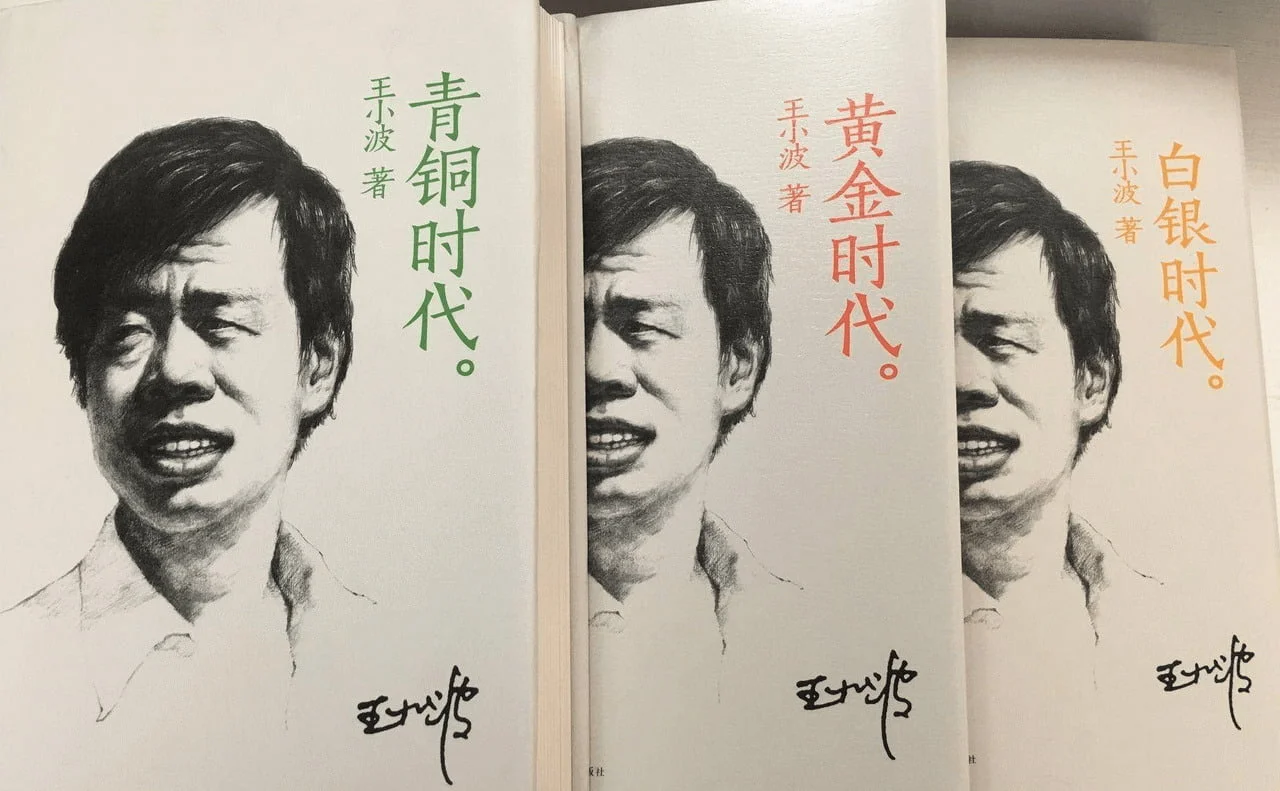 青铜时代。
王小波 著
王小波
黄金时代。
王小波 著
王小波
版社
白银时代。
王小波 著
王小波
社